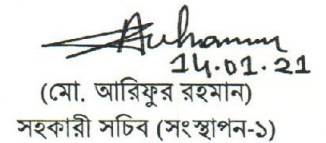 14.01.21
(মো. আরিফুর রহমান)
সহকারী সচিব (সংস্থাপন-১)